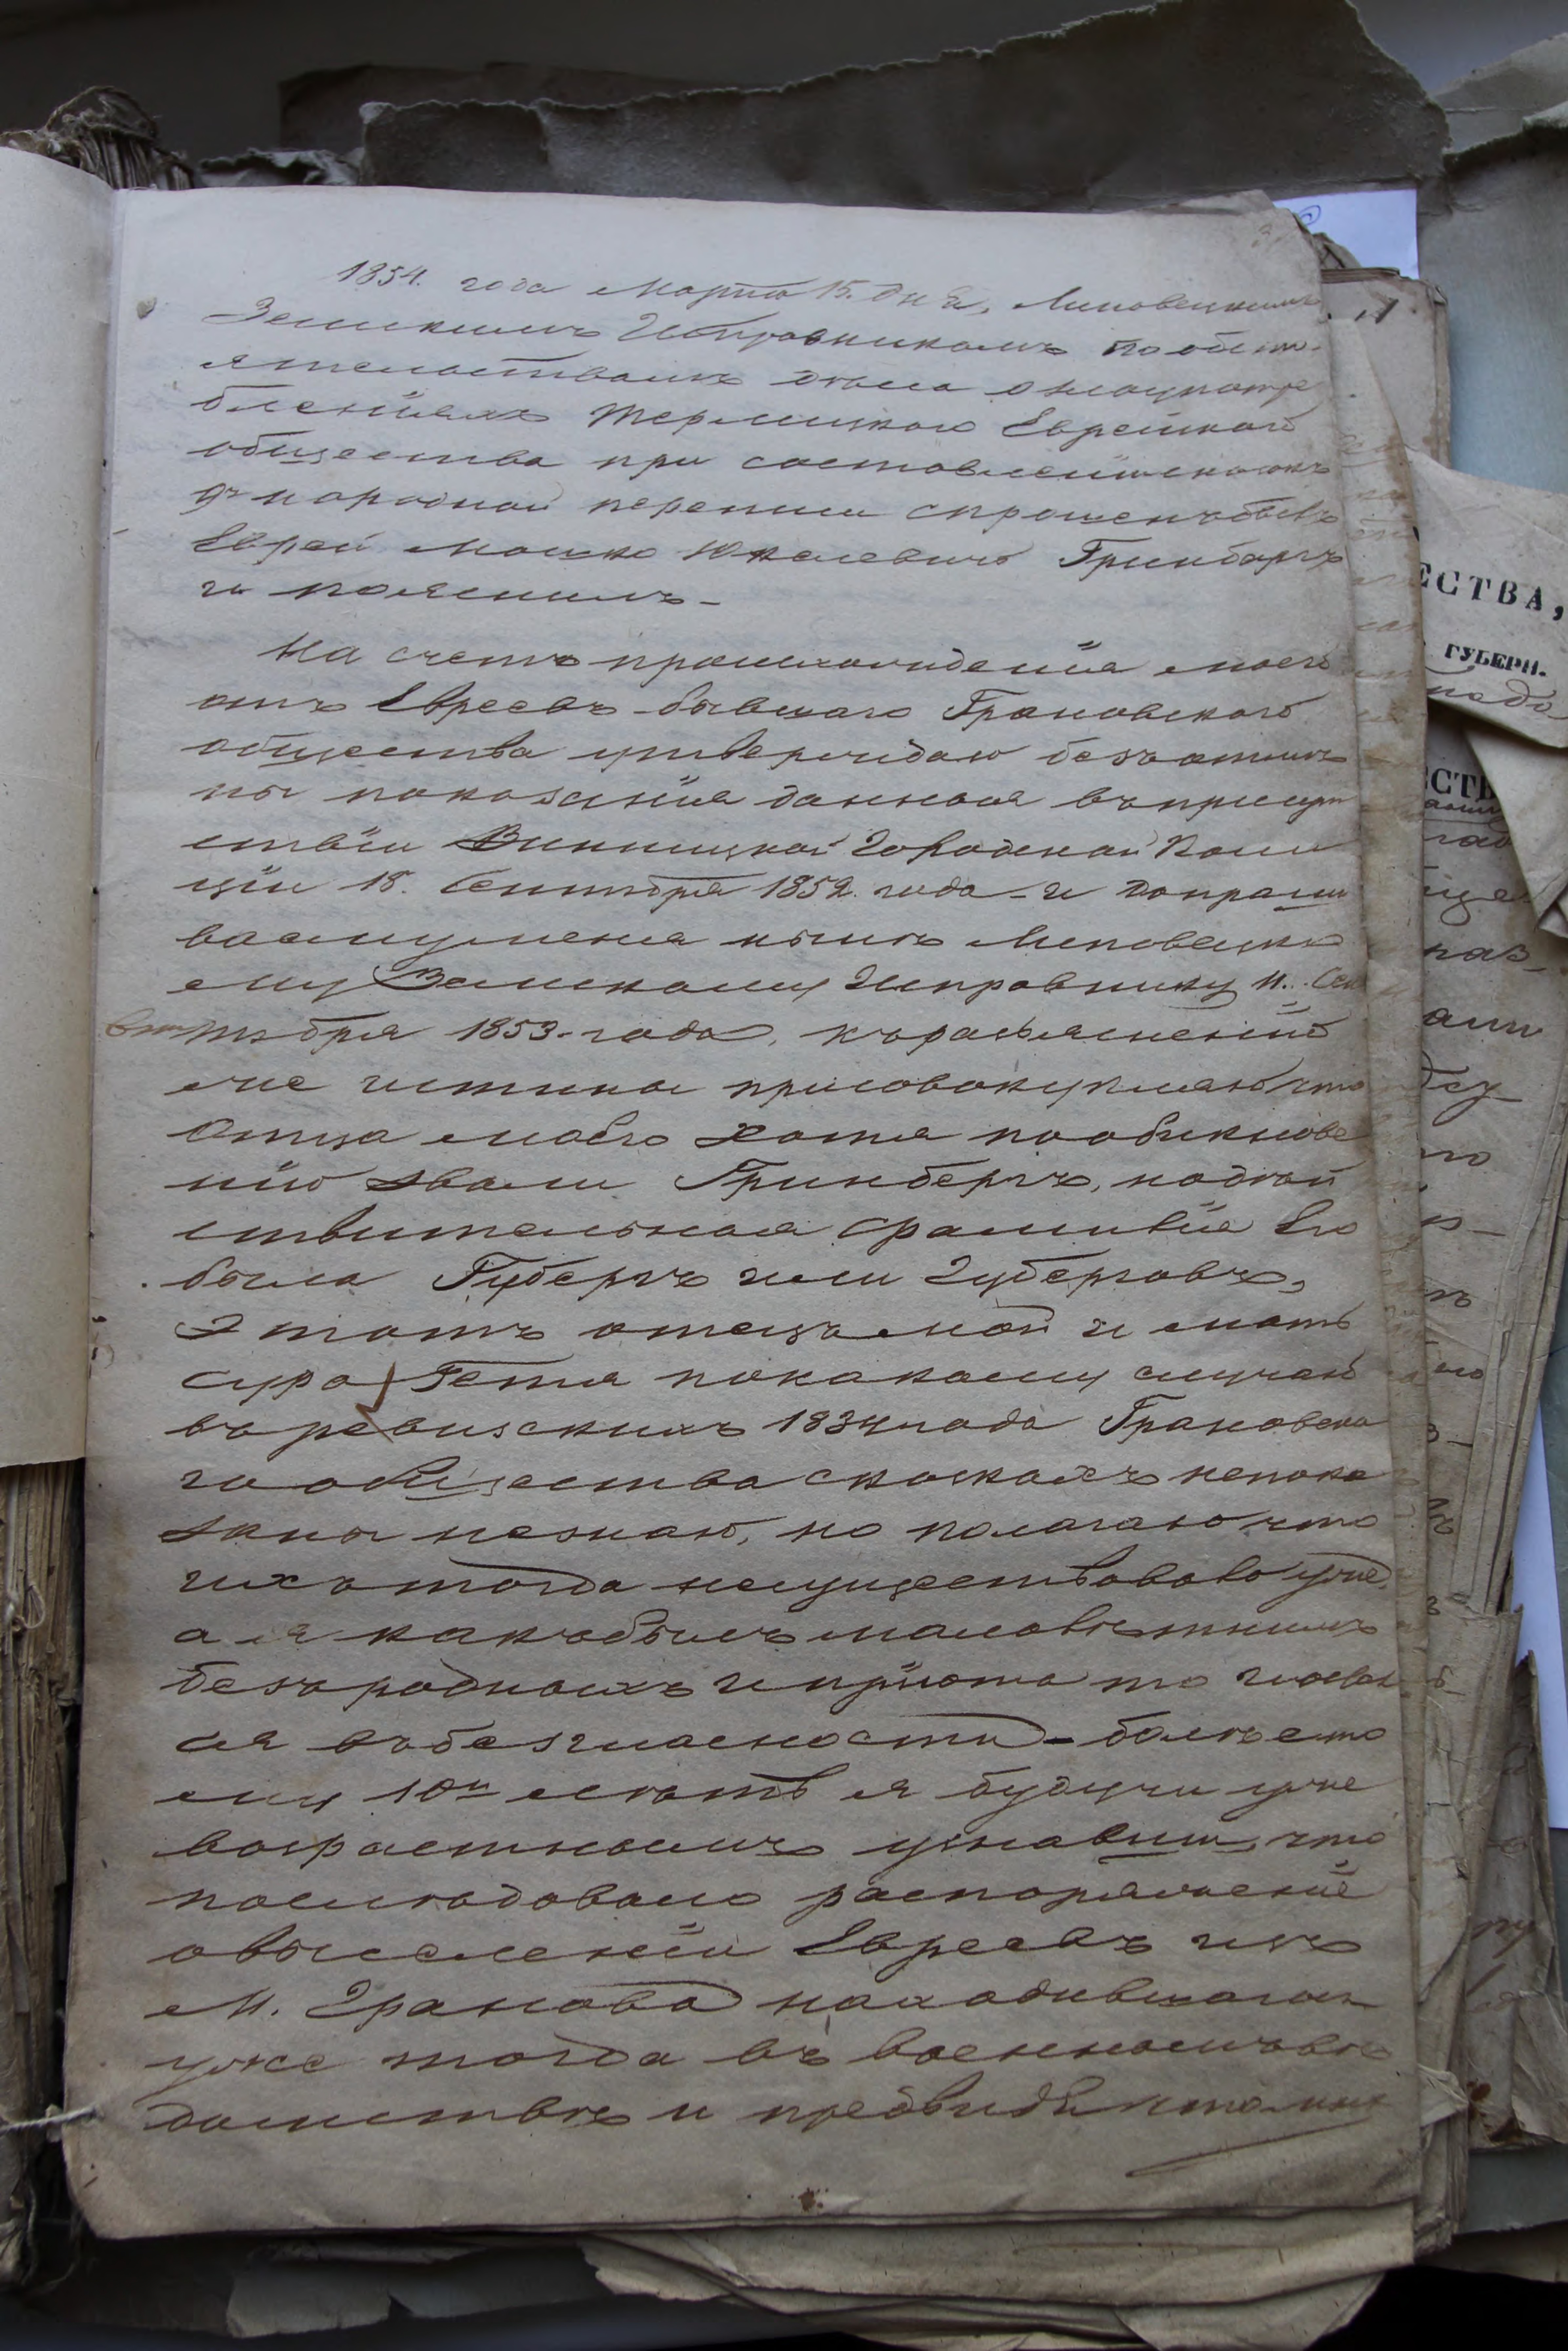 1854. года Марта 15. дня, Липовецкимъ
Земскимъ Исправникомъ по обсто-
ятельствамъ дела о злоупотре
бленіяхъ Терлицкого Еврейского
общества при составленіи сказокъ
9й народной переписи спрошенъ былъ
Еврей Мошко Юкелевичь Гринбергъ
и пояснилъ-
На счетъ произхожденія моего
отъ Евреевъ бывшаго Грановского
общества утверждаю безъ отмѣ
ны показанія данноя въ присут
ствіи Винницкой Городской Поли
ціи 18. Сентября 1852. года - и допраши
ваемуменя нынѣ Липовецко
му Земскому Исправнику 11. Сен
тября 1853. года, къ разъясненію
же истины присовокупляю что
Отца моего хотя по обыкнове
нію звали Гринбергъ, но дѣй
ствительноя фамилія Его
была Губергъ или Губерговъ,
Этотъ отецъ мой и мать
Сура Гетя по какому случаю
въ ревизскихъ 1834 года Грановска
го общества сказкахъ не пока
заны незнаю, но полагаю что
ихъ тогда несуществовало уже,
а я какъ былъ малолѣтнимъ
безъ родныхъ и пріюта то и остал
ся въ безгласности - болѣе то
му 10ти лѣтъ я будучи уже
возрастномъ узнавши, что
послѣдовало распоряженіе
о выселеніи Евреевъ изъ
М. Гранова находившагось
уже тогда въ военномъ вѣ
домствѣ и предвидя что мнѣ
ЕСТВА,
ГУБЕРН.